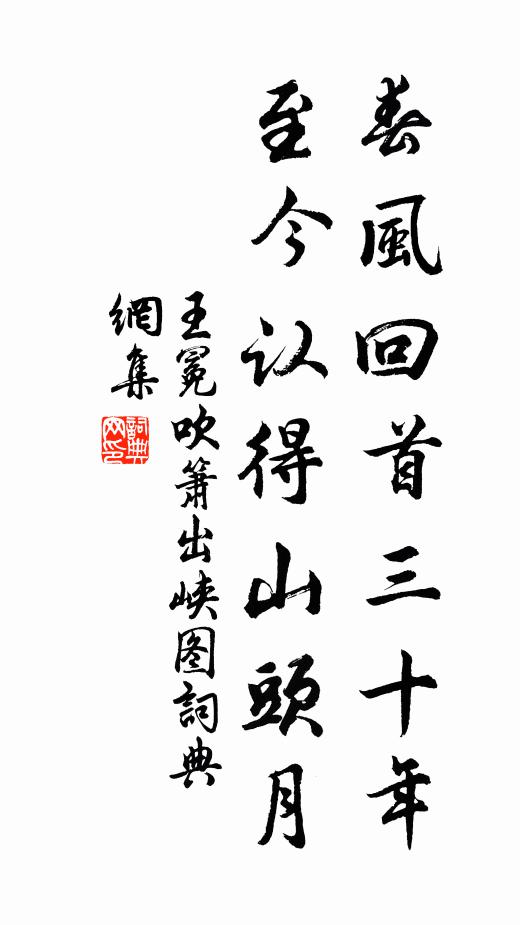 春風回首三十年
至今认得山頭月
王冕吹簫出峡图詞典
網集
詞典
网印